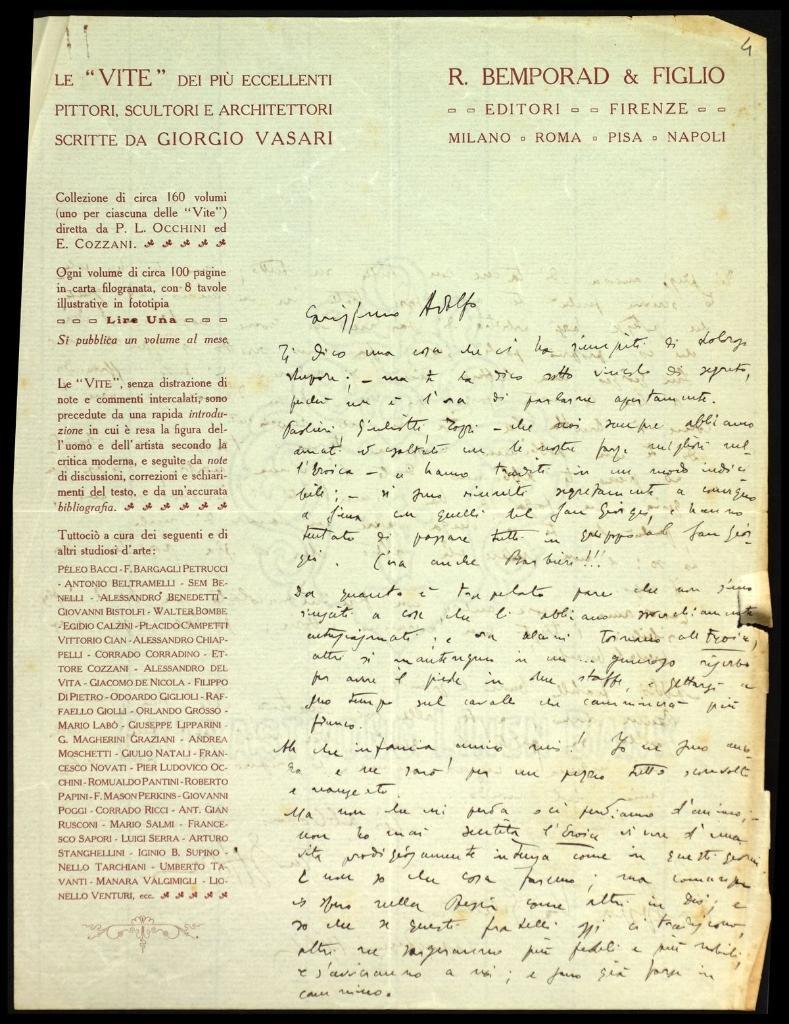 4
LE "VITE" DEI PIÙ ECCELLENTI
PITTORI, SCULTORI E ARCHITETTORI
SCRITTE DA GIORGIO VASARI
R. BEMPORAD & FIGLIO
EDITORI FIRENZE
MILANO ROMA PISA NAPOLI
Collezione di circa 160 volumi
(uno per ciascuna delle "Vite")
diretta da P. L. OCCHINI ed
E. COZZANI.
Ogni volume di circa 100 pagine
in carta filogranata, con 8 tavole
illustrative in fototipia
Lire Una
Si pubblica un volume al mese.
Le "VITE", senza distrazione di
note e commenti intercalati, sono
precedute da una rapida introdu-
zione in cui è resa la figura del-
l'uomo e dell'artista secondo la
critica moderna, e seguite da note
di discussioni, correzioni e schiari-
menti del testo, e da un'accurata
bibliografia.
Tuttociò a cura dei seguenti e di
altri studiosi d'arte:
PÈLEO BACCI - F. BARGAGLI PETRUCCI
- ANTONIO BELTRAMELLI - SEM BE-
NELLI - ALESSANDRO BENEDETTI -
GIOVANNI BISTOLFI - WALTER BOMBE
- EGIDIO CALZINI - PLACIDO CAMPETTI
VITTORIO CIAN - ALESSANDRO CHIAP-
PELLI - CORRADO CORRADINO - ET-
TORE COZZANI - ALESSANDRO DEL
VITA - GIACOMO DE NICOLA - FILIPPO
DI PIETRO - ODOARDO GIGLIOLI - RAF-
FAELLO GIOLLI - ORLANDO GROSSO -
MARIO LABÒ - GIUSEPPE LIPPARINI -
G. MAGHERINI GRAZIANI - ANDREA
MOSCHETTI - GIULIO NATALI - FRAN-
CESCO NOVATI - PIER LUDOVICO OC-
CHINI - ROMUALDO PANTINI - ROBERTO
PAPINI - F. MASON PERKINS - GIOVANNI
POGGI - CORRADO RICCI - ANT. GIAN
RUSCONI - MARIO SALMI - FRANCE-
SCO SAPORI - LUIGI SERRA - ARTURO
STANGHELLINI - IGINIO B. SUPINO -
NELLO TARCHIANI - UMBERTO TA-
VANTI - MANARA VALGIMIGLI - LIO-
NELLO VENTURI, ecc.
Carissimo Adolfo
Ti dico una cosa che ci ha riempiti di doloroso
stupore; - ma te la dico sotto vincolo di segreto,
perché non è l'ora di parlarne apertamente.
- che noi sempre abbiamo
amati ed esaltati con le nostre forze migliori nel-
l'Eroica - ci hanno traditi in un modo indici-
bile; - si sono riuniti segretamente a convegno
a Siena con quelli del San Giorgio, e hanno
tentato di passare tutti in gruppo al San Gior-
gio. C'era anche Barbieri!!!
Da quanto è trapelato pare che non siano
riusciti a cose che li abbiano
; e ora alcuni tornano all'Eroica,
altri si mantengono in un ... generoso riserbo
per avere il piede in due staffe, e gettarsi a
suo tempo sul cavallo che camminerà più
franco.
Ah che infamia amico mio! Io ne sono anco-
ra e ne sarò per un pezzo tutto sconvolto
e
Ma non che mi perda o ci perdiamo d'animo; -
non ho mai sentita l'Eroica vivere d'una
vita prodigiosamente intensa come in questi giorni
E non so che cosa faremo; ma comunque
io spero nella come altri in Dio; e
so che se questi fratelli oggi ci tradiscono,
altri ne sorgeranno più fedeli e più nobili,
e s'avvicineranno a noi; e sono già forse in
cammino.